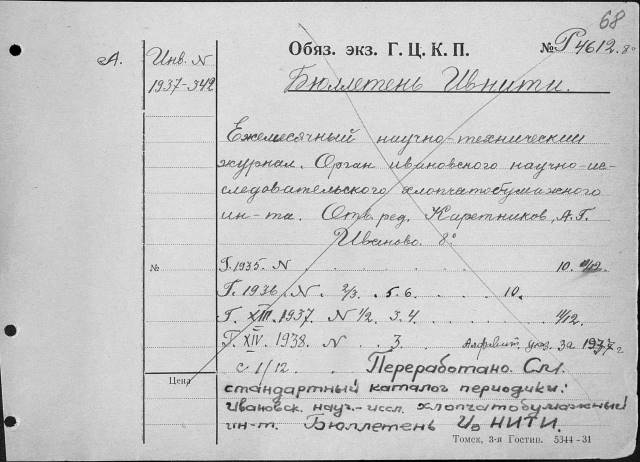 68
А. Инв. N Обяз. экз. Г. Ц. К. П. № Р4612. 8°
1937-342 Бюллетень Ивнити.
Ежемесячный научно-технический
журнал. Орган ивановского научно-ис-
следовательского хлопчатобумажного
ин-та. Отв. ред. Каретников, А. Г.
Иваново. 8°
№ Г. 1935. N 10. 11/12.
Г. 1936. N. 2/3. 5. 6. 10.
Г. XIII. 1937. N 1/2. 3. 4. 11/12.
Г. XIV. 1938. N. 3 Алфавит. указ. за 1937 г
с 1/12. Переработано. См.
Цена стандартный каталог периодики:
Ивановск. науч.-иссл. хлопчатобумажный
ин-т. Бюллетень Ив НИТИ.
Томск, 3-я Гостип. 5344-31